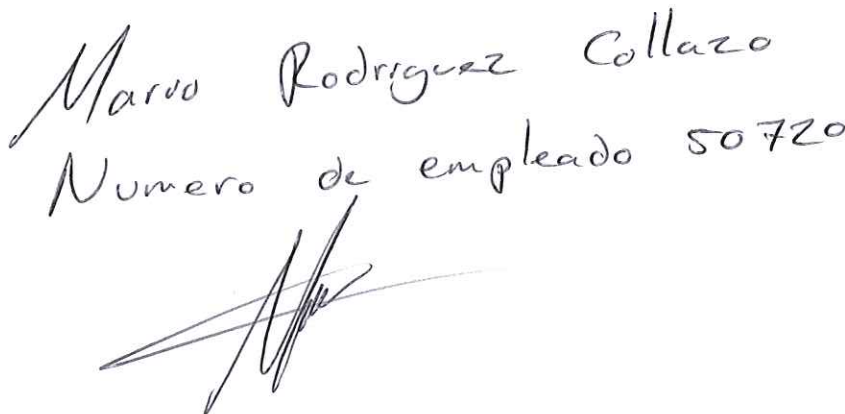 Mario Rodriguez Collazo
Numero de empleado 50720